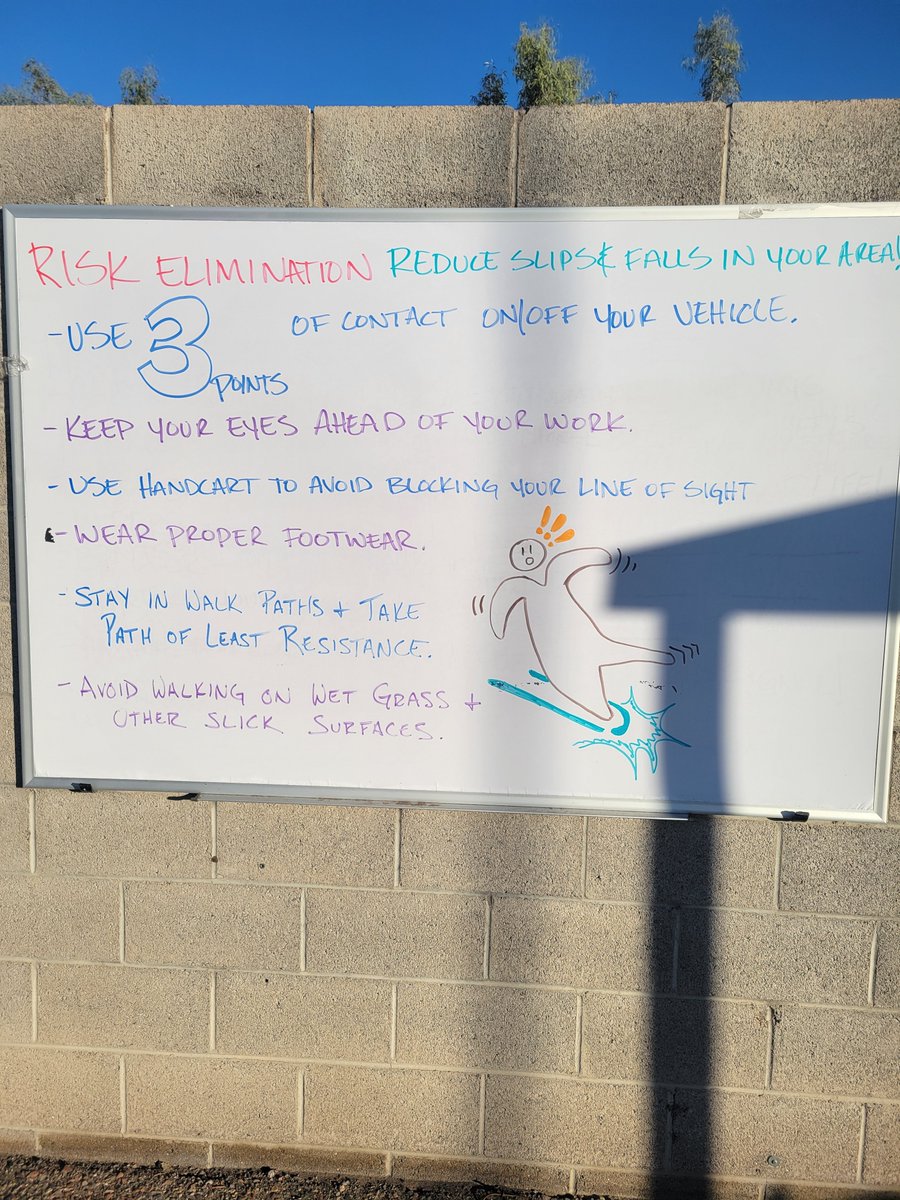 RISK ELIMINATION REDUCE SLIPS & FALLS IN YOUR AREA!
- USE 3 POINTS OF CONTACT ON/OFF YOUR VEHICLE.
- KEEP YOUR EYES AHEAD OF YOUR WORK.
- USE HANDCART TO AVOID BLOCKING YOUR LINE OF SIGHT
- WEAR PROPER FOOTWEAR.
- STAY IN WALK PATHS + TAKE
PATH OF LEAST RESISTANCE.
- AVOID WALKING ON WET GRASS +
OTHER SLICK SURFACES.
!!!